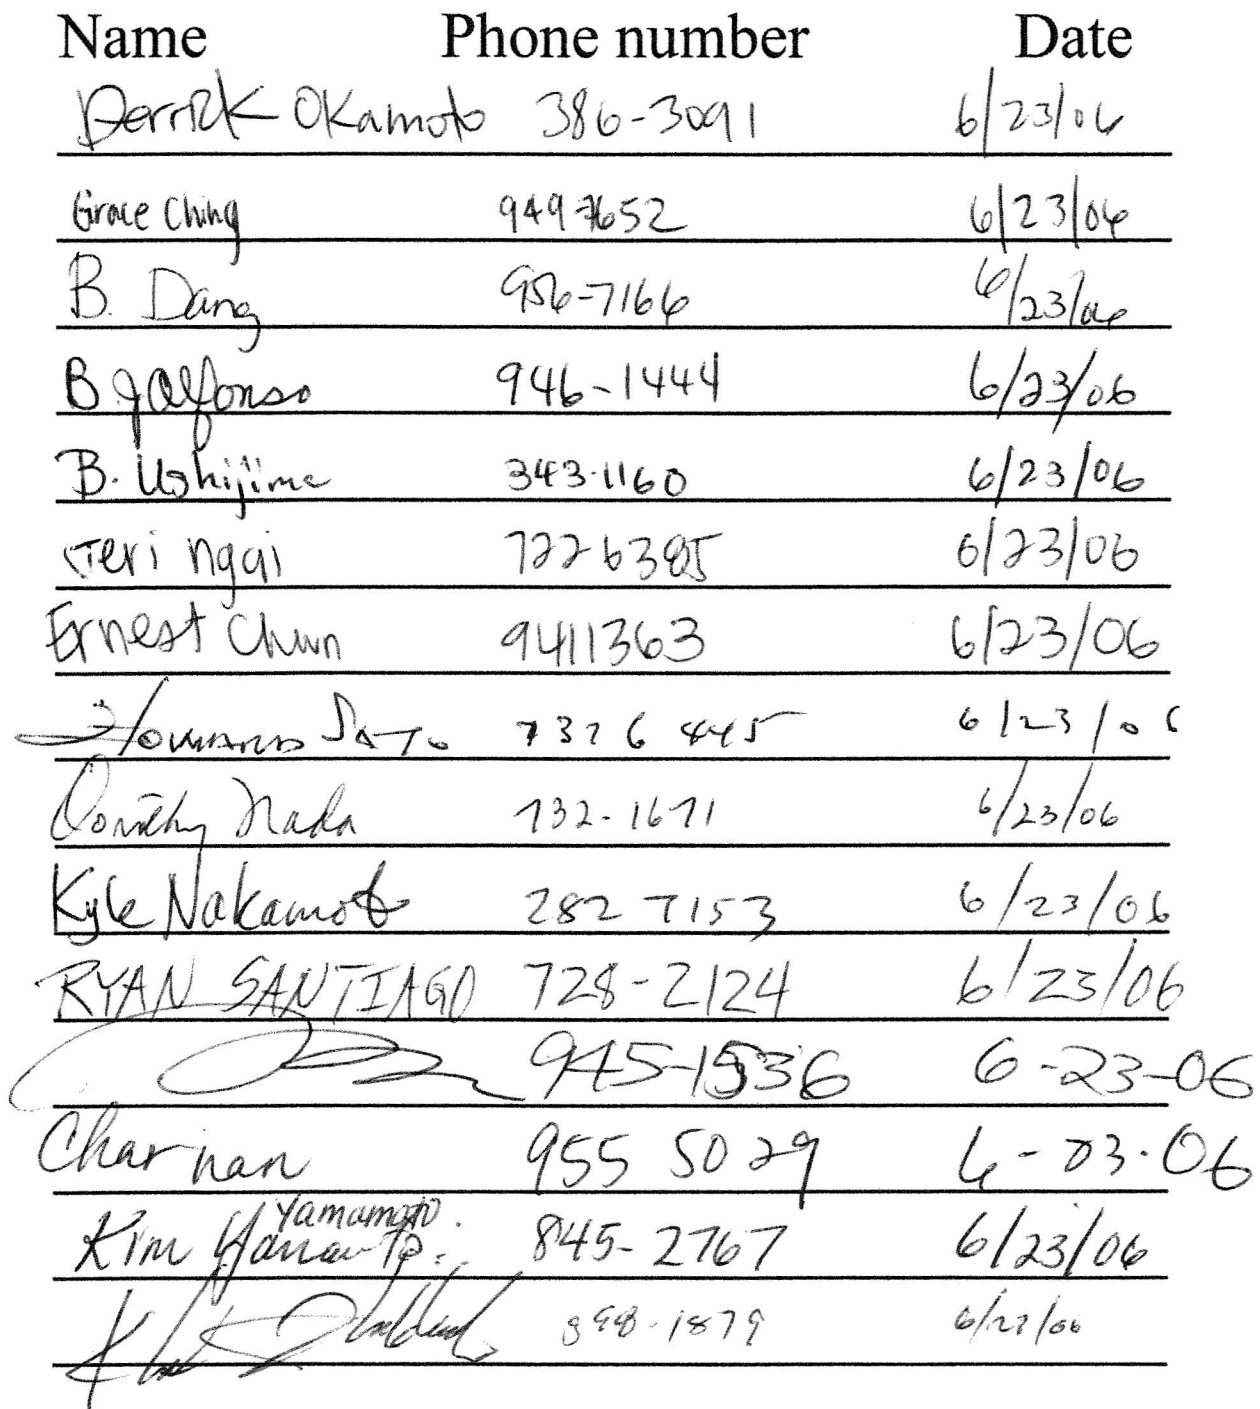 Name Phone number Date
Derrick Okamoto 386-3091 6/23/06
Grace Ching 949-7652 6/23/06
B. Dang 956-7166 6/23/06
B J Alfonso 946-1444 6/23/06
B. Ushijima 343-1160 6/23/06
Jeri Ngai 722 6385 6/23/06
Ernest Chun 9411363 6/23/06
Howard Sato 737 6 445 6/23/06
Dorothy Nada 732-1671 6/23/06
Kyle Nakamoto 282 7153 6/23/06
RYAN SANTIAGO 728-2124 6/23/06
945-1536 6-23-06
Char nan 955 5029 6-23-06
Yamamoto.
Kim Yamamoto. 845-2767 6/23/06
398-1879 6/23/06